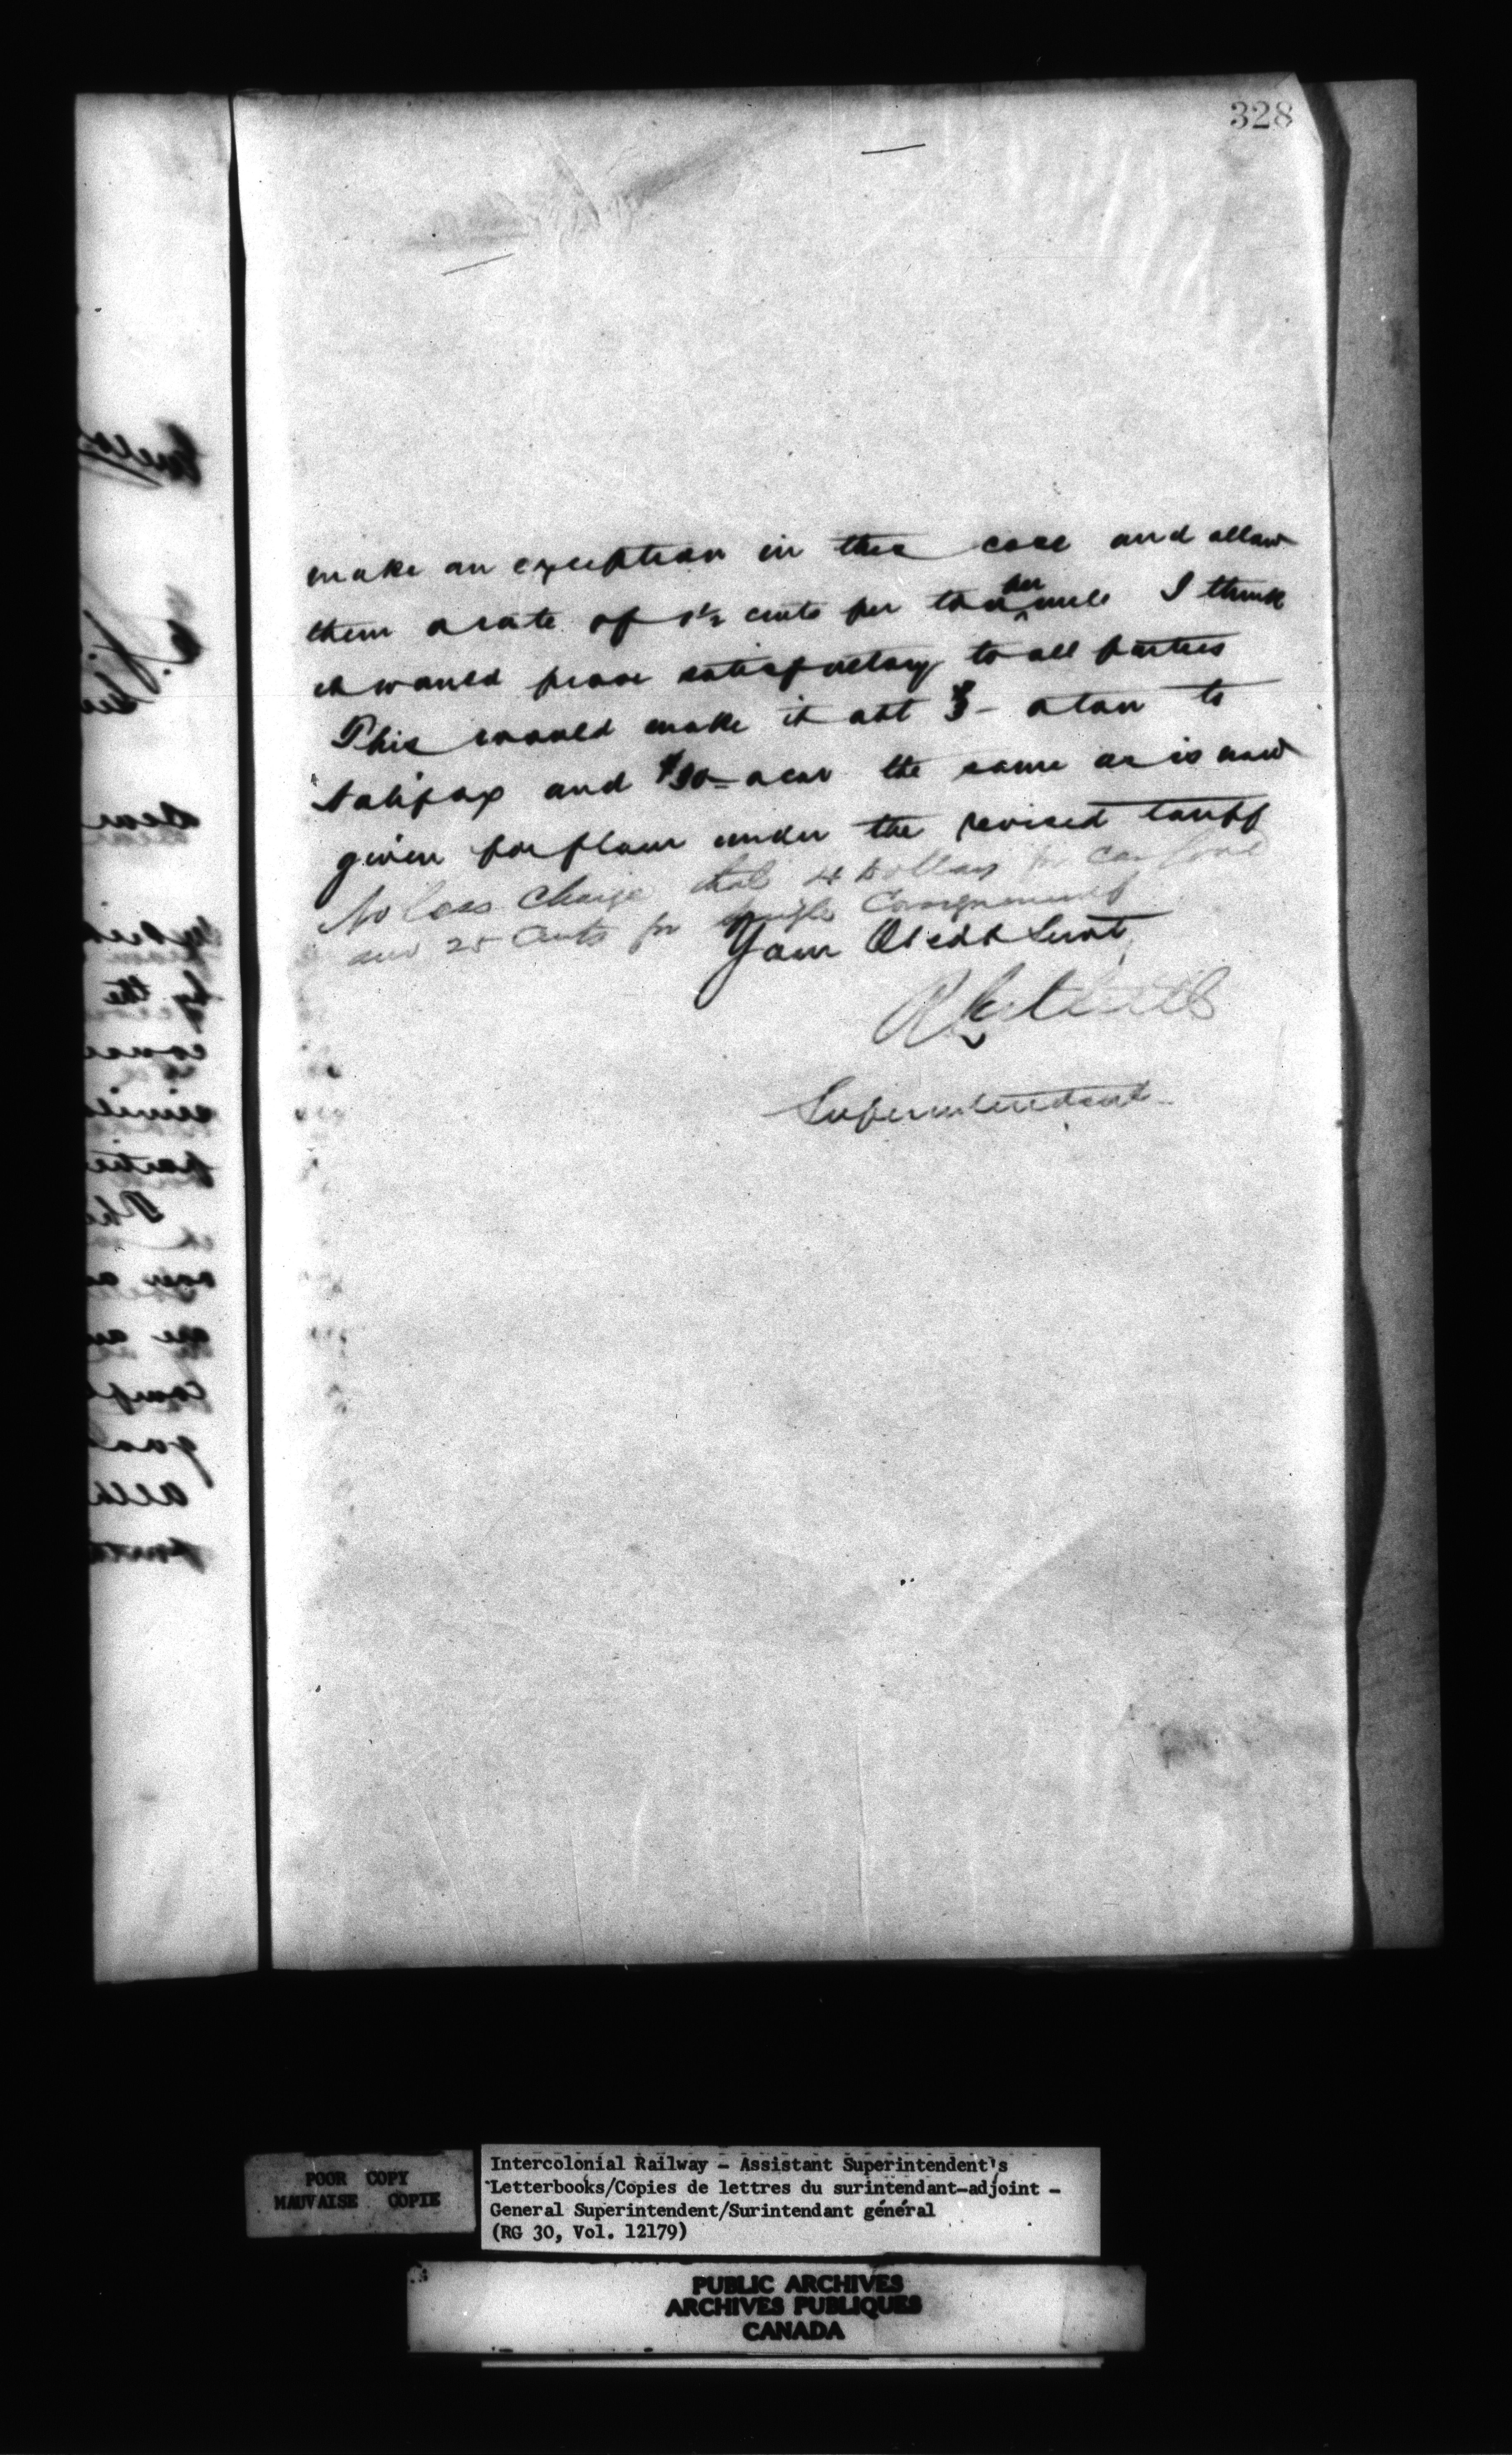 328
make an exception in this case and allow
them a rate of 1½ cents per ton per mile I think
it would prove satisfactory to all parties
This would make it abt $3- a ton to
Halifax and $30- a car the same as is now
given for flour under the revised tariff
No less charge than 4 Dollars for car load
and 25 Cents for single Consignment
Your Obedt Servt
Superintendent
POOR COPY
MAUVAISE COPIE
Intercolonial Railway - Assistant Superintendent's
Letterbooks/Copies de lettres du surintendant-adjoint -
General Superintendent/Surintendant général
(RG 30, Vol. 12179)
PUBLIC ARCHIVES
ARCHIVES PUBLIQUES
CANADA